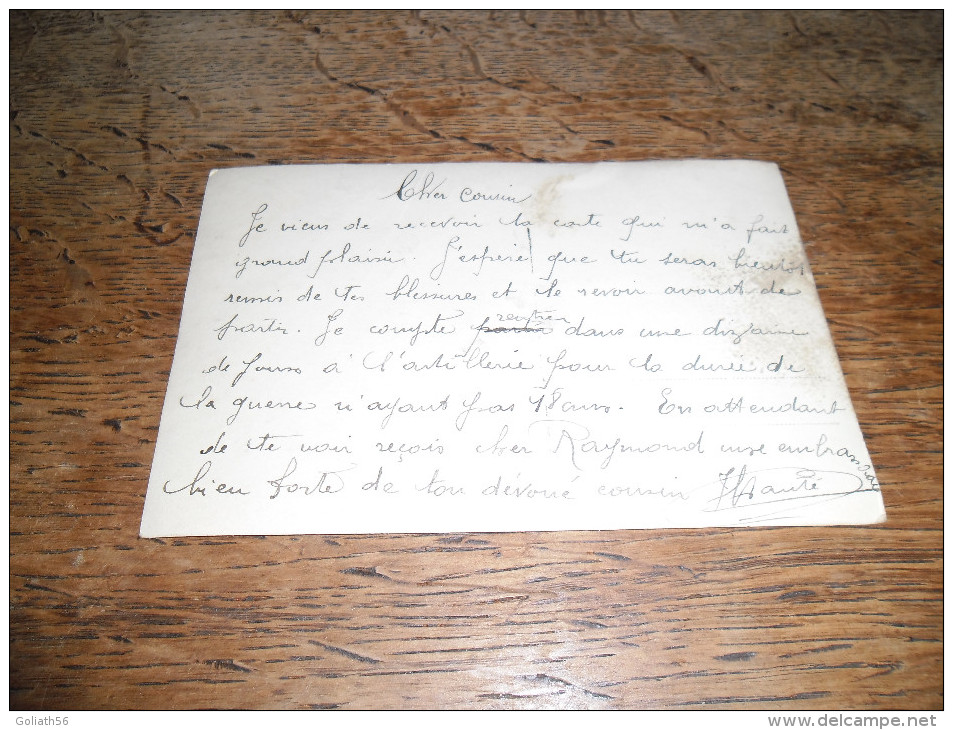 Cher cousin
Je viens de recevoir ta carte qui m'a fait
grand plaisir. J'espère que tu seras bientot
remis de tes blessures et te revoir avant de
partir. Je compte rentrer dans une dizaine
de jours à l'artillerie pour la durée de
la guerre n'ayant pas 18 ans. En attendant
de te voir reçois cher Raymond une embrassade
bien forte de ton dévoué cousin
Goliath56
www.delcampe.net